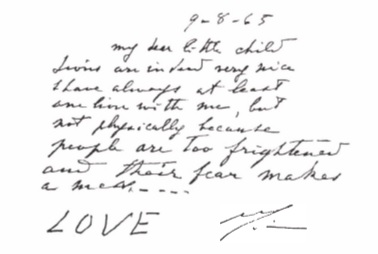 9-8-65
my dear little child
Lions are indeed very nice
I have always at least
one lion with me, but
not physically because
people are too frightened
and their fear makes
a mess----
LOVE